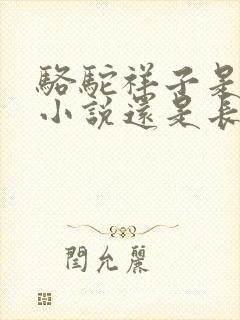 駱駝祥子是
小說還是長
閆允麗